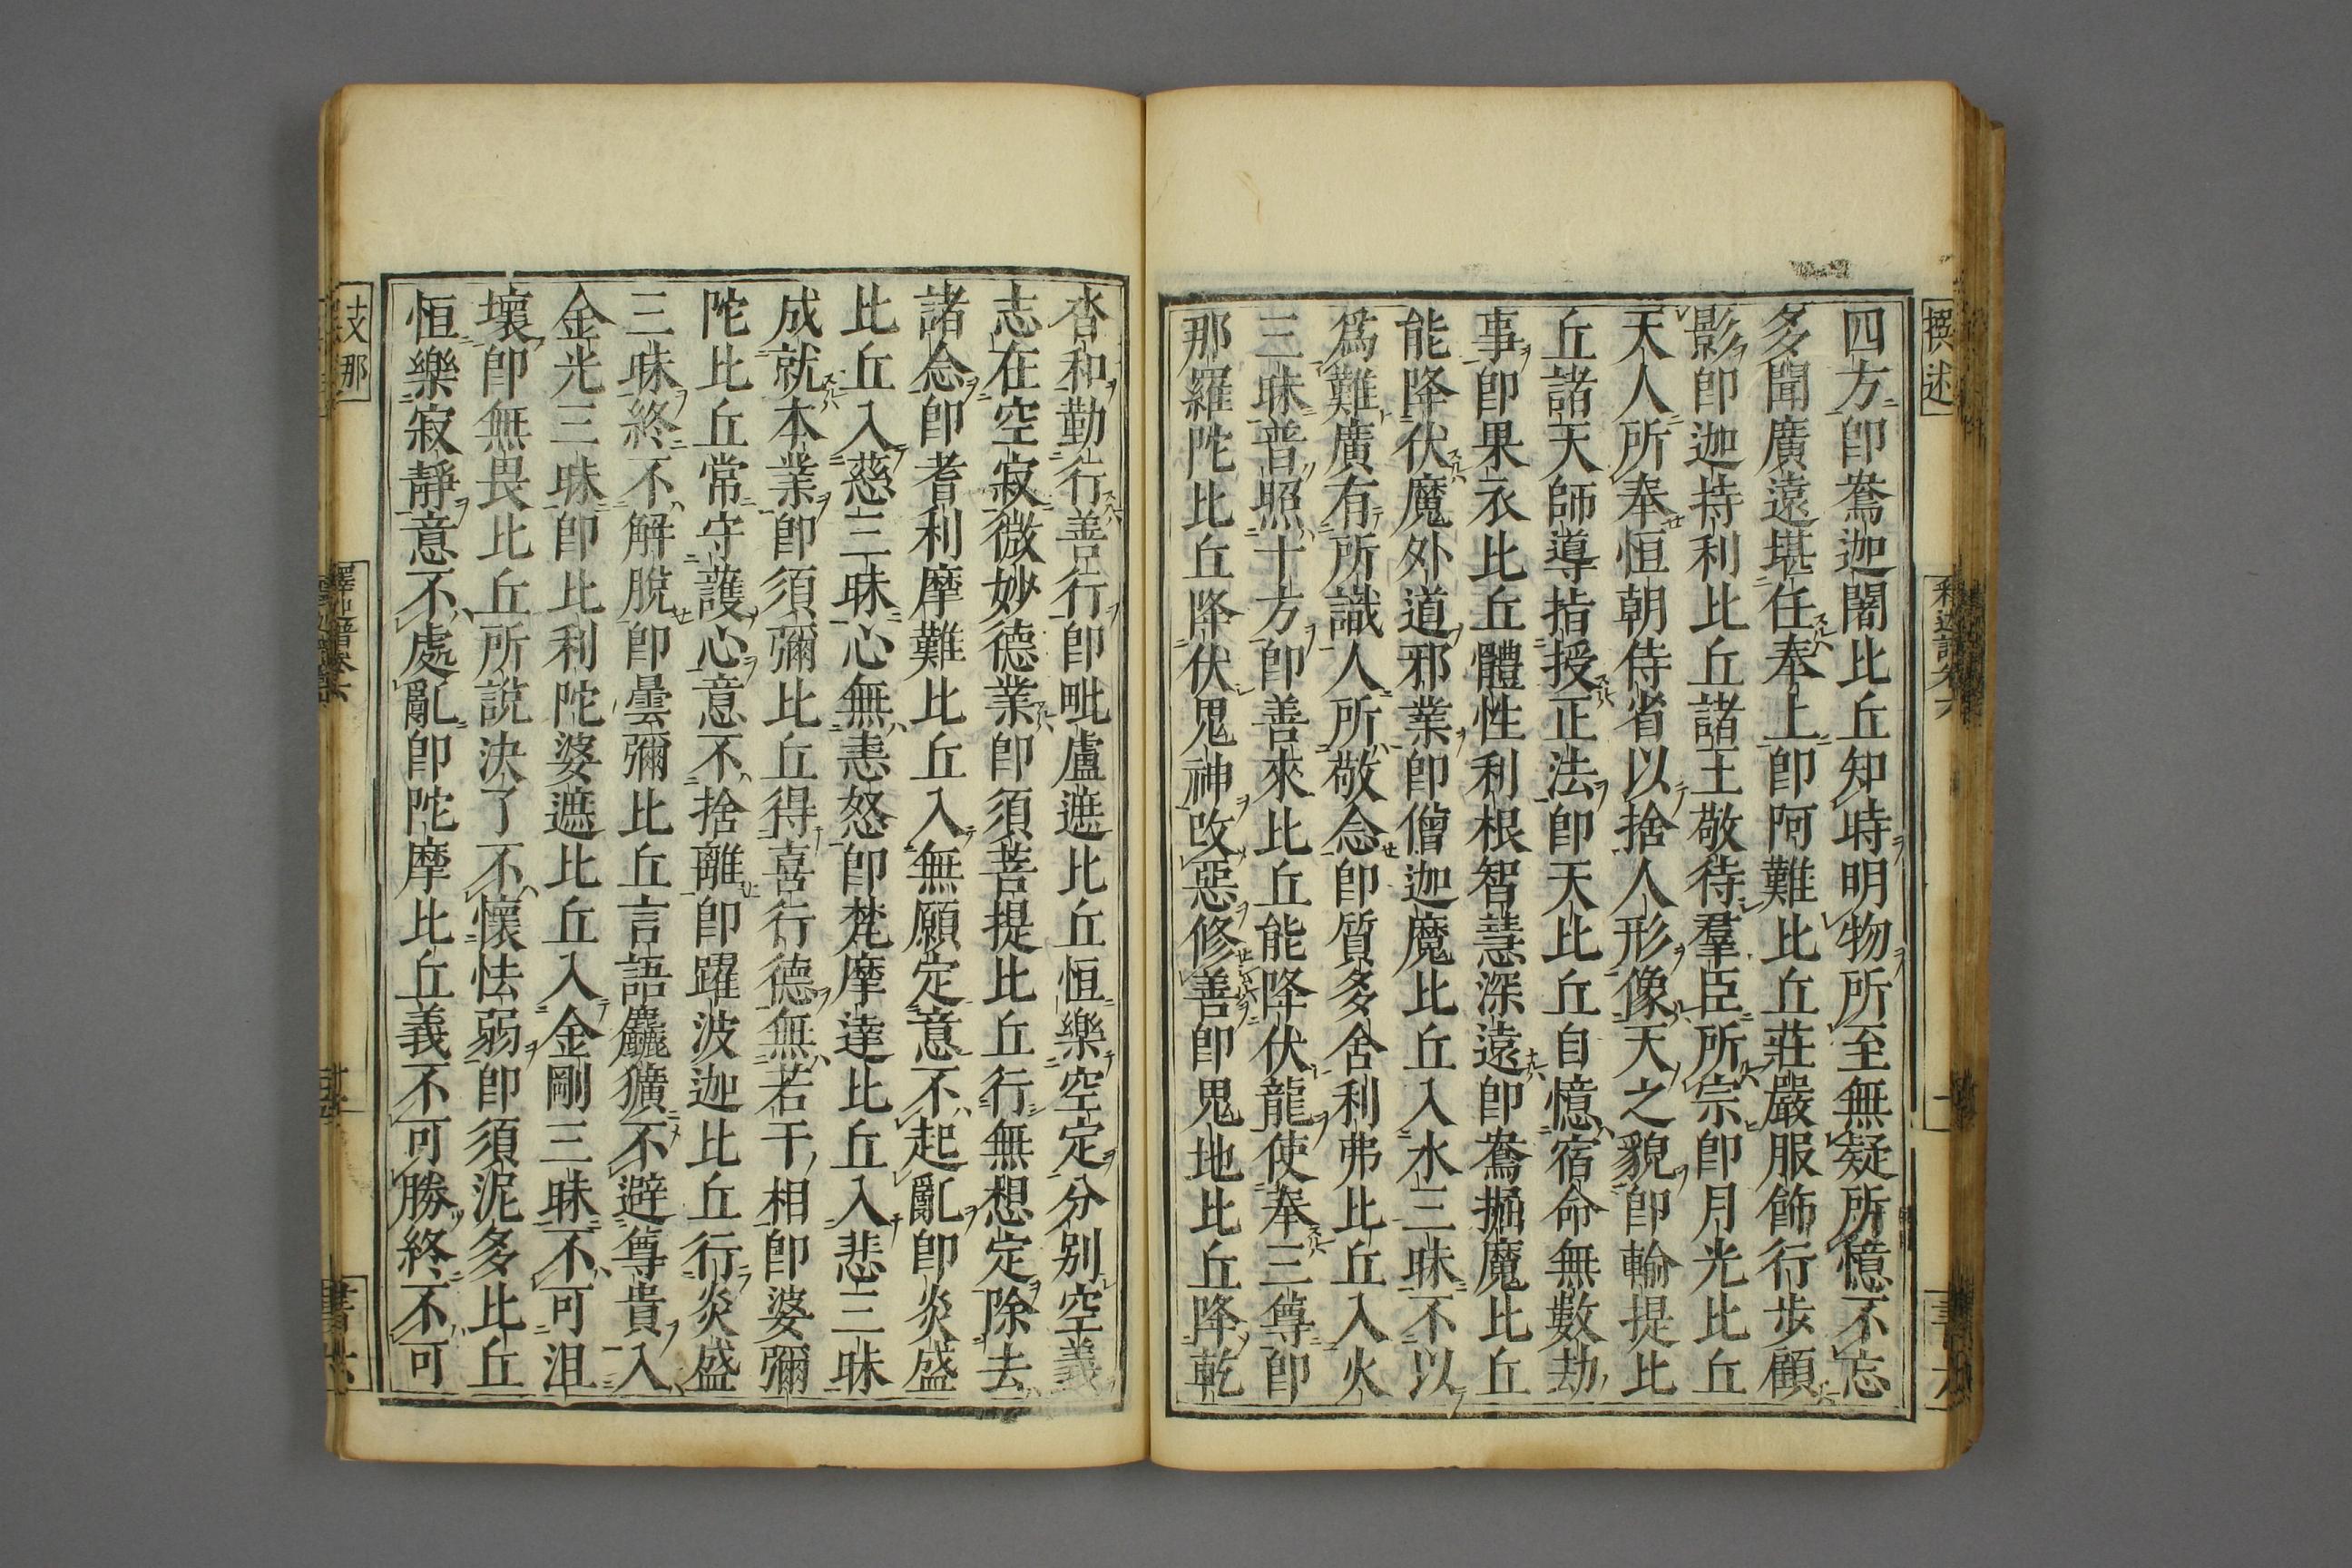 撰述
四方即鴦迦闍比丘知時明物所至無疑所憶不忘
多聞廣遠堪任奉上即阿難比丘莊嚴服飾行步顧
影即迦持利比丘諸王敬待羣臣所宗即月光比丘
天人所奉恒朝侍省以捨人形像天之貌即輸提比
丘諸天師導指授正法即天比丘自憶宿命無數劫
事即果衣比丘體性利根智慧深遠即鴦掘魔比丘
能降伏魔外道邪業即僧迦魔比丘入水三昧不以
爲難廣有所識人所敬念即質多舍利弗比丘入火
三昧普照十方即善來比丘能降伏龍使奉三尊即
那羅陀比丘降伏鬼神改惡修善即鬼地比丘降乾
沓和勤行善行即毗盧遮比丘恒樂空定分別空義
志在空寂微妙德業即須菩提比丘行無想定除去
諸念即耆利摩難比丘入無願定意不起亂即炎盛
比丘入慈三昧心無恚怒即梵摩達比丘入悲三昧
成就本業即須彌比丘得喜行德無若干相即婆彌
陀比丘常守護心意不捨離即躍波迦比丘行炎盛
三昧終不解脫即曇彌比丘言語麤獷不避尊貴入
金光三昧即比利陀婆遮比丘入金剛三昧不可沮
壞即無畏比丘所說決了不懷怯弱即須泥多比丘
恒樂寂靜意不處亂即陀摩比丘義不可勝終不可
支那
釋迦譜卷六